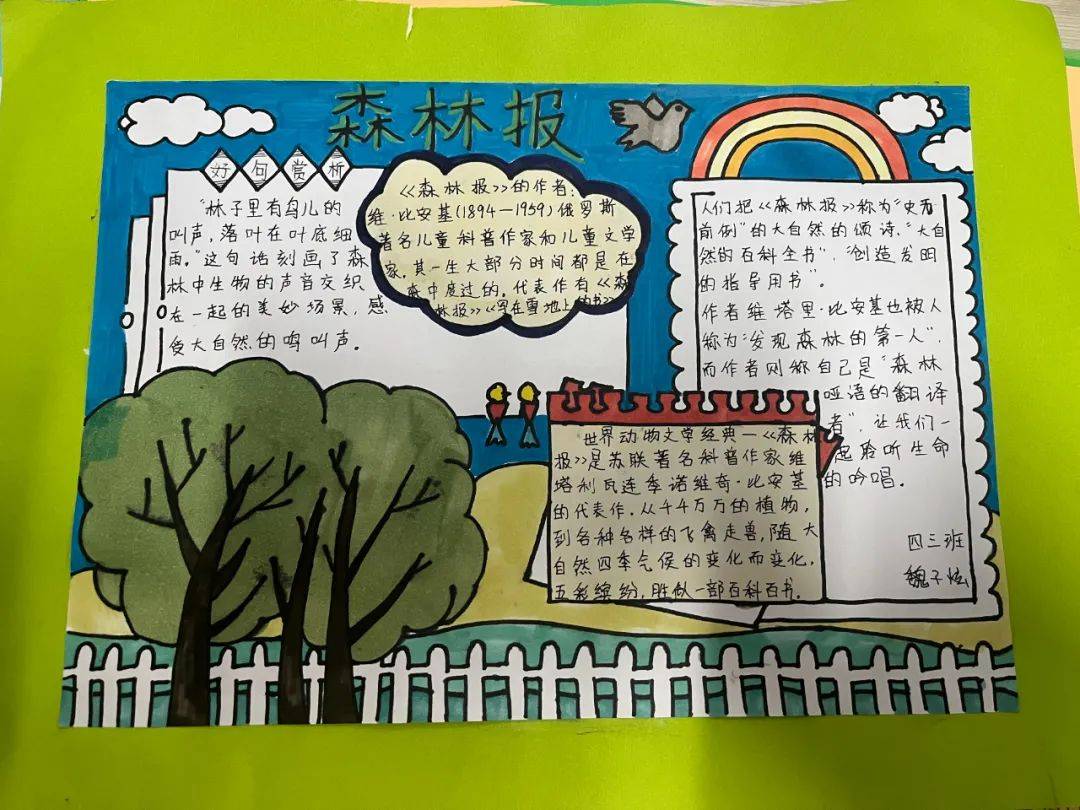 森林报
好句赏析
“林子里有鸟儿的
叫声，落叶在叶底细
雨。”这句话刻画了森
林中生物的声音交织
在一起的美妙场景，感
受大自然的鸣叫声。
《森林报》的作者：
维·比安基(1894—1959)俄罗斯
著名儿童科普作家和儿童文学
家。其一生大部分时间都是在
森中度过的。代表作有《森
林报》《写在雪地上的书》
人们把《森林报》称为“史无
前例”的大自然的颂诗、“大自
然的百科全书”、“创造发明
的指导用书”。
作者维塔里·比安基也被人
称为“发现森林的第一人”，
而作者则称自己是“森林
哑语的翻译
者”，让我们一
起聆听生命
的吟唱。
“世界动物文学经典—《森林
报》是苏联著名科普作家维
塔利瓦连季诺维奇·比安基
的代表作。从千千万万的植物，
到各种各样的飞禽走兽，随大
自然四季气候的变化而变化，
五彩缤纷，胜似一部百科百书。
四三班
魏子炫